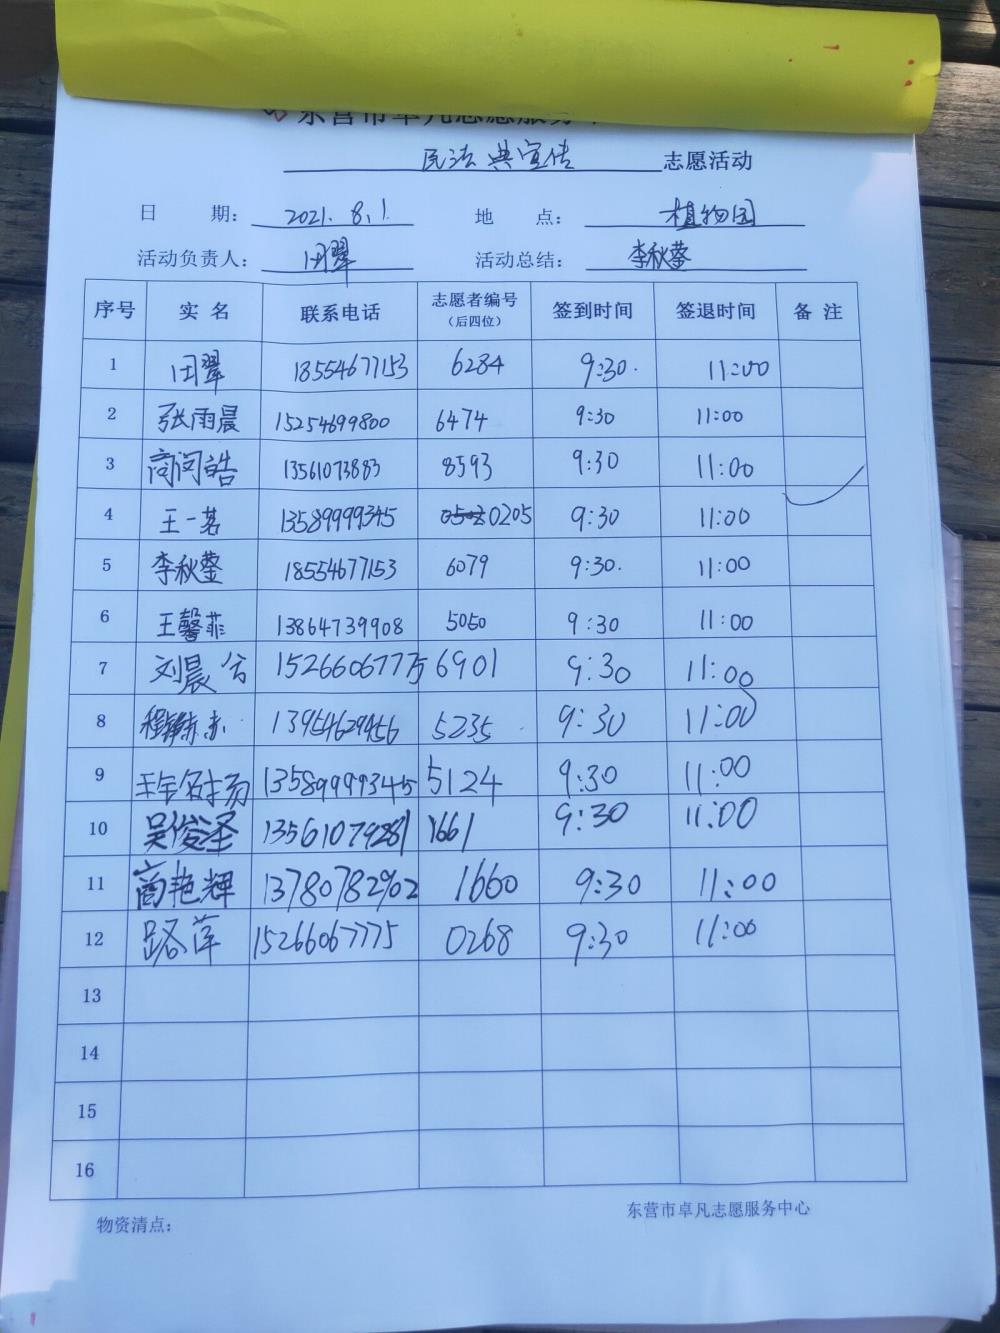 东营市卓凡志愿服务中
民法典宣传 志愿活动
日 期: 2021.8.1 地 点: 植物园
活动负责人: 田翠 活动总结: 李秋蓥
序号 实 名 联系电话 志愿者编号(后四位) 签到时间 签退时间 备 注
1 田翠 18554677153 6284 9:30. 11:00
2 张雨晨 15254699800 6474 9:30 11:00
3 商闵皓 13561073883 8593 9:30 11:00
4 王一茗 13589999345 0205 9:30 11:00
5 李秋蓥 18554677153 6079 9:30. 11:00
6 王馨菲 13864739908 5050 9:30 11:00
7 刘晨兮 15266067775 6901 9:30 11:00
8 13954629456 5235 9:30 11:00
9 13589999345 5124 9:30 11:00
10 吴俊泽 13561079281 1661 9:30 11:00
11 商艳辉 13780782902 1660 9:30 11:00
12 路萍 15266067775 0268 9:30 11:00
13
14
15
16
物资清点: 东营市卓凡志愿服务中心